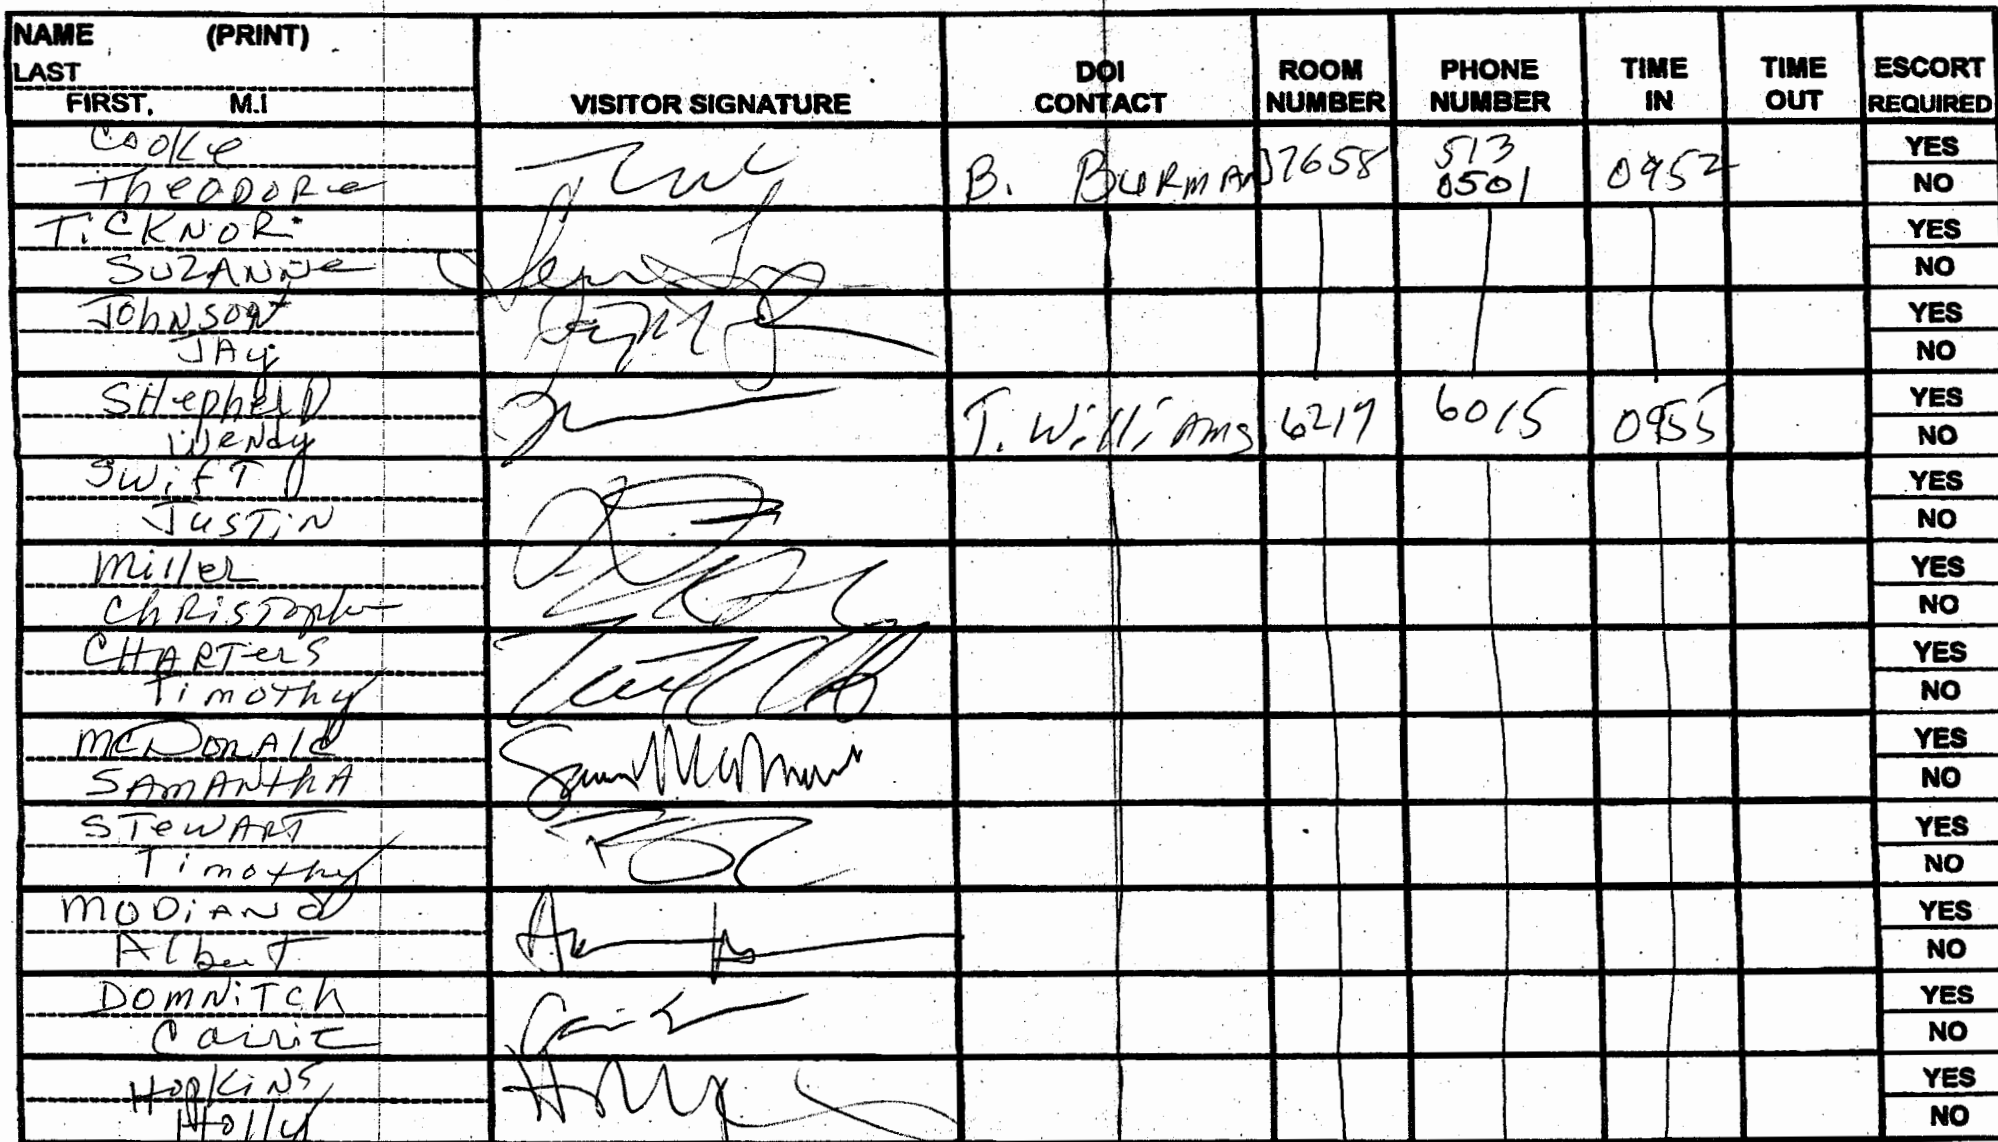 NAME (PRINT)
LAST
FIRST, M.I
VISITOR SIGNATURE
DOI CONTACT
ROOM NUMBER
PHONE NUMBER
TIME IN
TIME OUT
ESCORT REQUIRED
Cooke
Theodore
B. Burman 7658 513 0501 0952
YES
NO
TICKNOR
SUZANNe
YES
NO
Johnson
JAy
YES
NO
SHepherD
Wendy
T. Williams 6217 6015 0955
YES
NO
SwifT
JusTiN
YES
NO
Miller
ChRisToph
YES
NO
CHARTers
Timothy
YES
NO
McDonAld
SAMANthA
YES
NO
STewART
Timothy
YES
NO
MODiANO
Albert
YES
NO
DOMNiTch
Carrie
YES
NO
HopKiNS
Holly
YES
NO